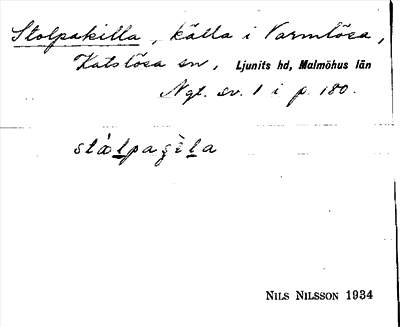 Stolpakilla, källa i Varmlösa,
Katslösa sn, Ljunits hd, Malmöhus län
Ngt. sv. 1 i p. 180.
stàlpagèla
NILS NILSSON 1934